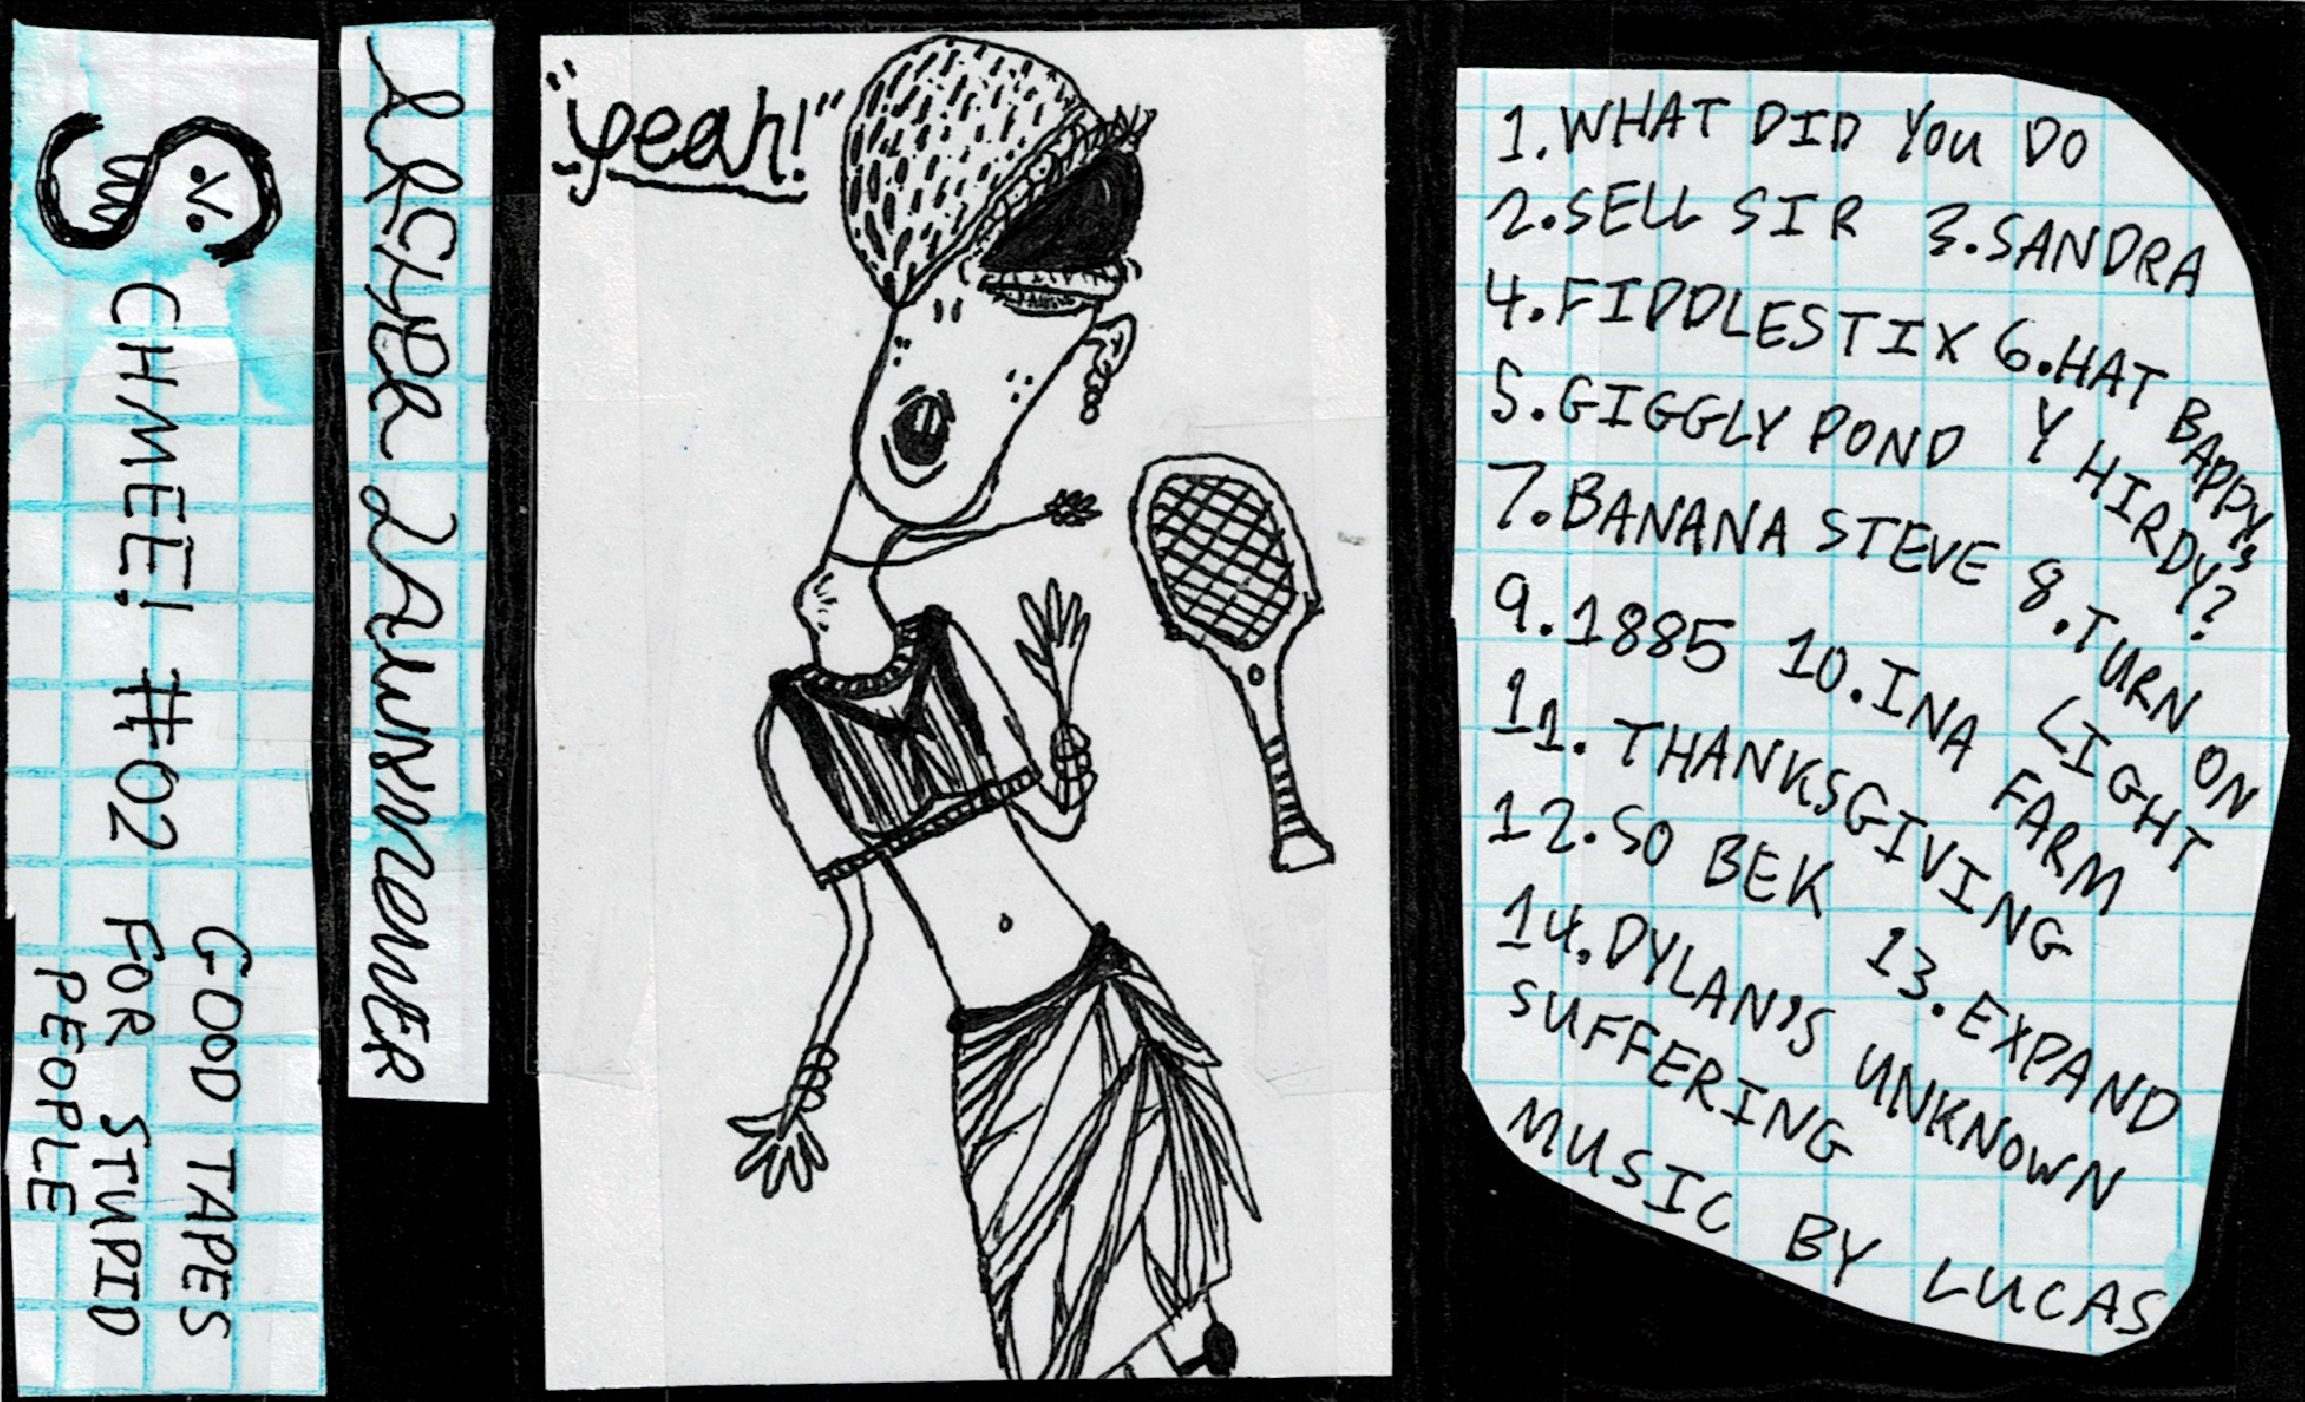 SCHMEE! #02
GOOD TAPES
FOR STUPID
PEOPLE
LAWNMOWER
"yeah!"
1. WHAT DID YOU DO
2. SELL SIR 3. SANDRA
4. FIDDLESTIX
5. GIGGLY POND
6. HAT BAPPY,
Y HIRDY?
7. BANANA STEVE
8. TURN ON
LIGHT
9. 1885 10. IN A FARM
11. THANKSGIVING
12. SO BEK 13. EXPAND
14. DYLAN'S UNKNOWN
SUFFERING
MUSIC BY LUCAS